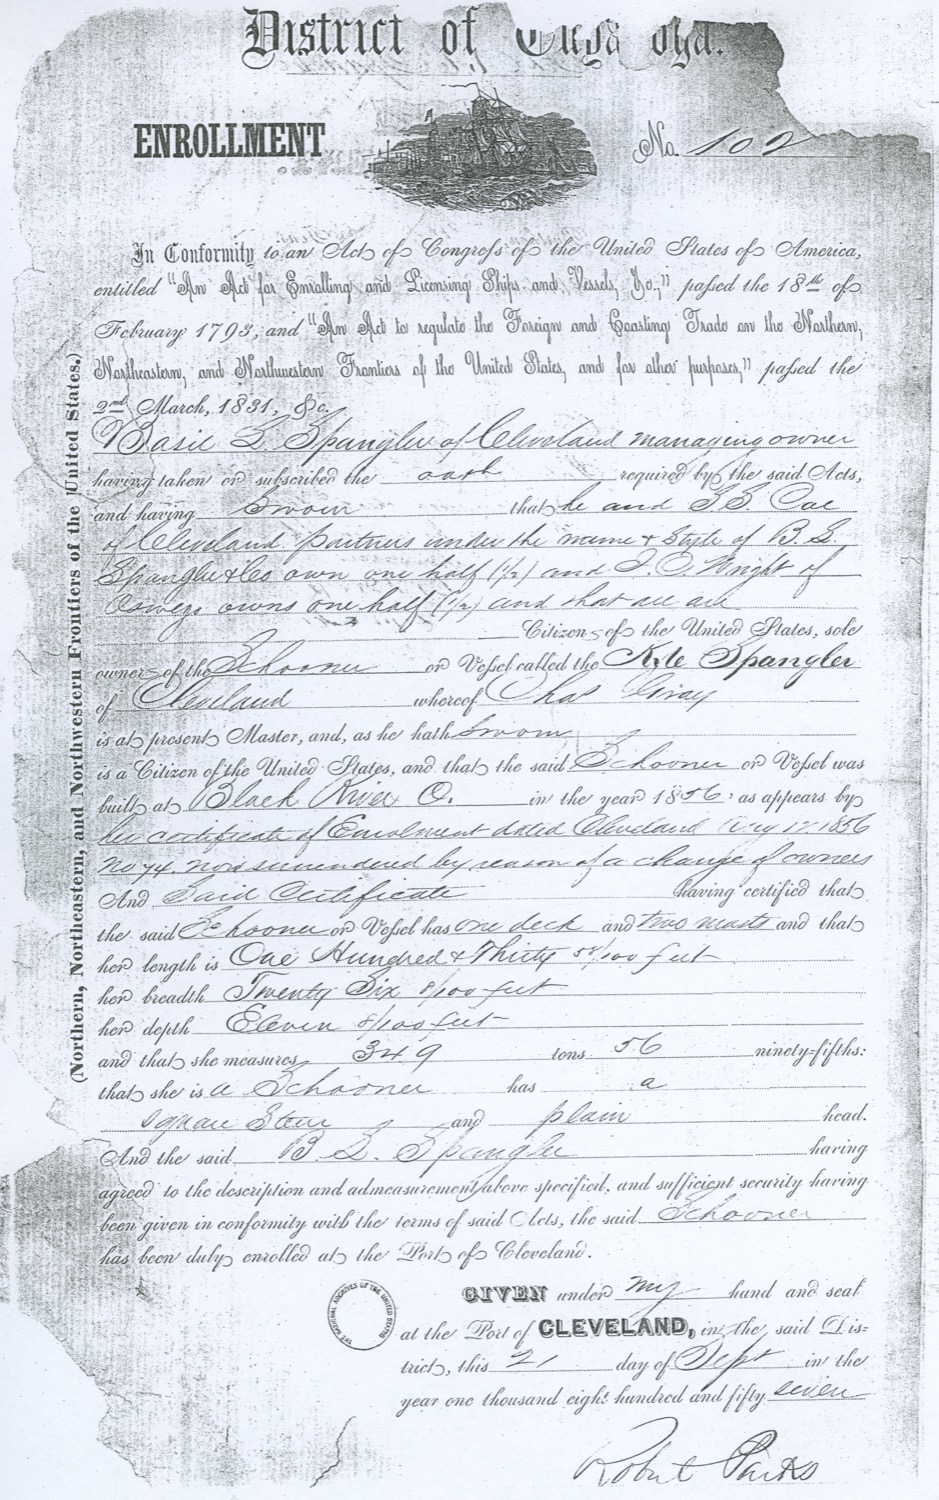 District of Cuyahoga.
ENROLLMENT
No. 102
In Conformity to an Act of Congress of the United States of America,
entitled "An Act for Enrolling and Licensing Ships and Vessels, &c.," passed the 18th of
February 1793, and "An Act to regulate the Foreign and Coasting Trade on the Northern,
Northeastern, and Northwestern Frontiers of the United States, and for other purposes," passed the
2nd March, 1831, &c.
Basil L. Spangler of Cleveland managing owner
having taken or subscribed the oath required by the said Acts,
and having Sworn that he and S.S. Coe
of Cleveland partners under the name & Style of B. L.
Spangler & Co own one half (1/2) and Wright of
Oswego owns one half (1/2) and that all are
Citizens of the United States, sole
owners of the Schooner or Vessel called the Kyle Spangler
of Cleveland whereof Chas Gray
is at present Master, and, as he hath Sworn
is a Citizen of the United States, and that the said Schooner or Vessel was
built at Black River O. in the year 1856, as appears by
her certificate of Enrolment dated Cleveland 1856
No 74. now surrendered by reason of a change of owners
And Said Certificate having certified that
the said Schooner or Vessel has one deck and two masts and that
her length is One Hundred & Thirty 58/100 feet
her breadth Twenty Six 8/100 feet
her depth Eleven 8/100 feet
and that she measures 349 tons 56 ninety-fifths:
that she is a Schooner has a
square Stern and plain head.
And the said B. L. Spangler having
agreed to the description and admeasurement above specified, and sufficient security having
been given in conformity with the terms of said Acts, the said Schooner
has been duly enrolled at the Port of Cleveland.
GIVEN under my hand and seal
at the Port of CLEVELAND, in the said Dis-
trict, this 21 day of Sept in the
year one thousand eight hundred and fifty seven
Robert Parks
(Northern, Northeastern, and Northwestern Frontiers of the United States.)
THE NATIONAL ARCHIVES OF THE UNITED STATES